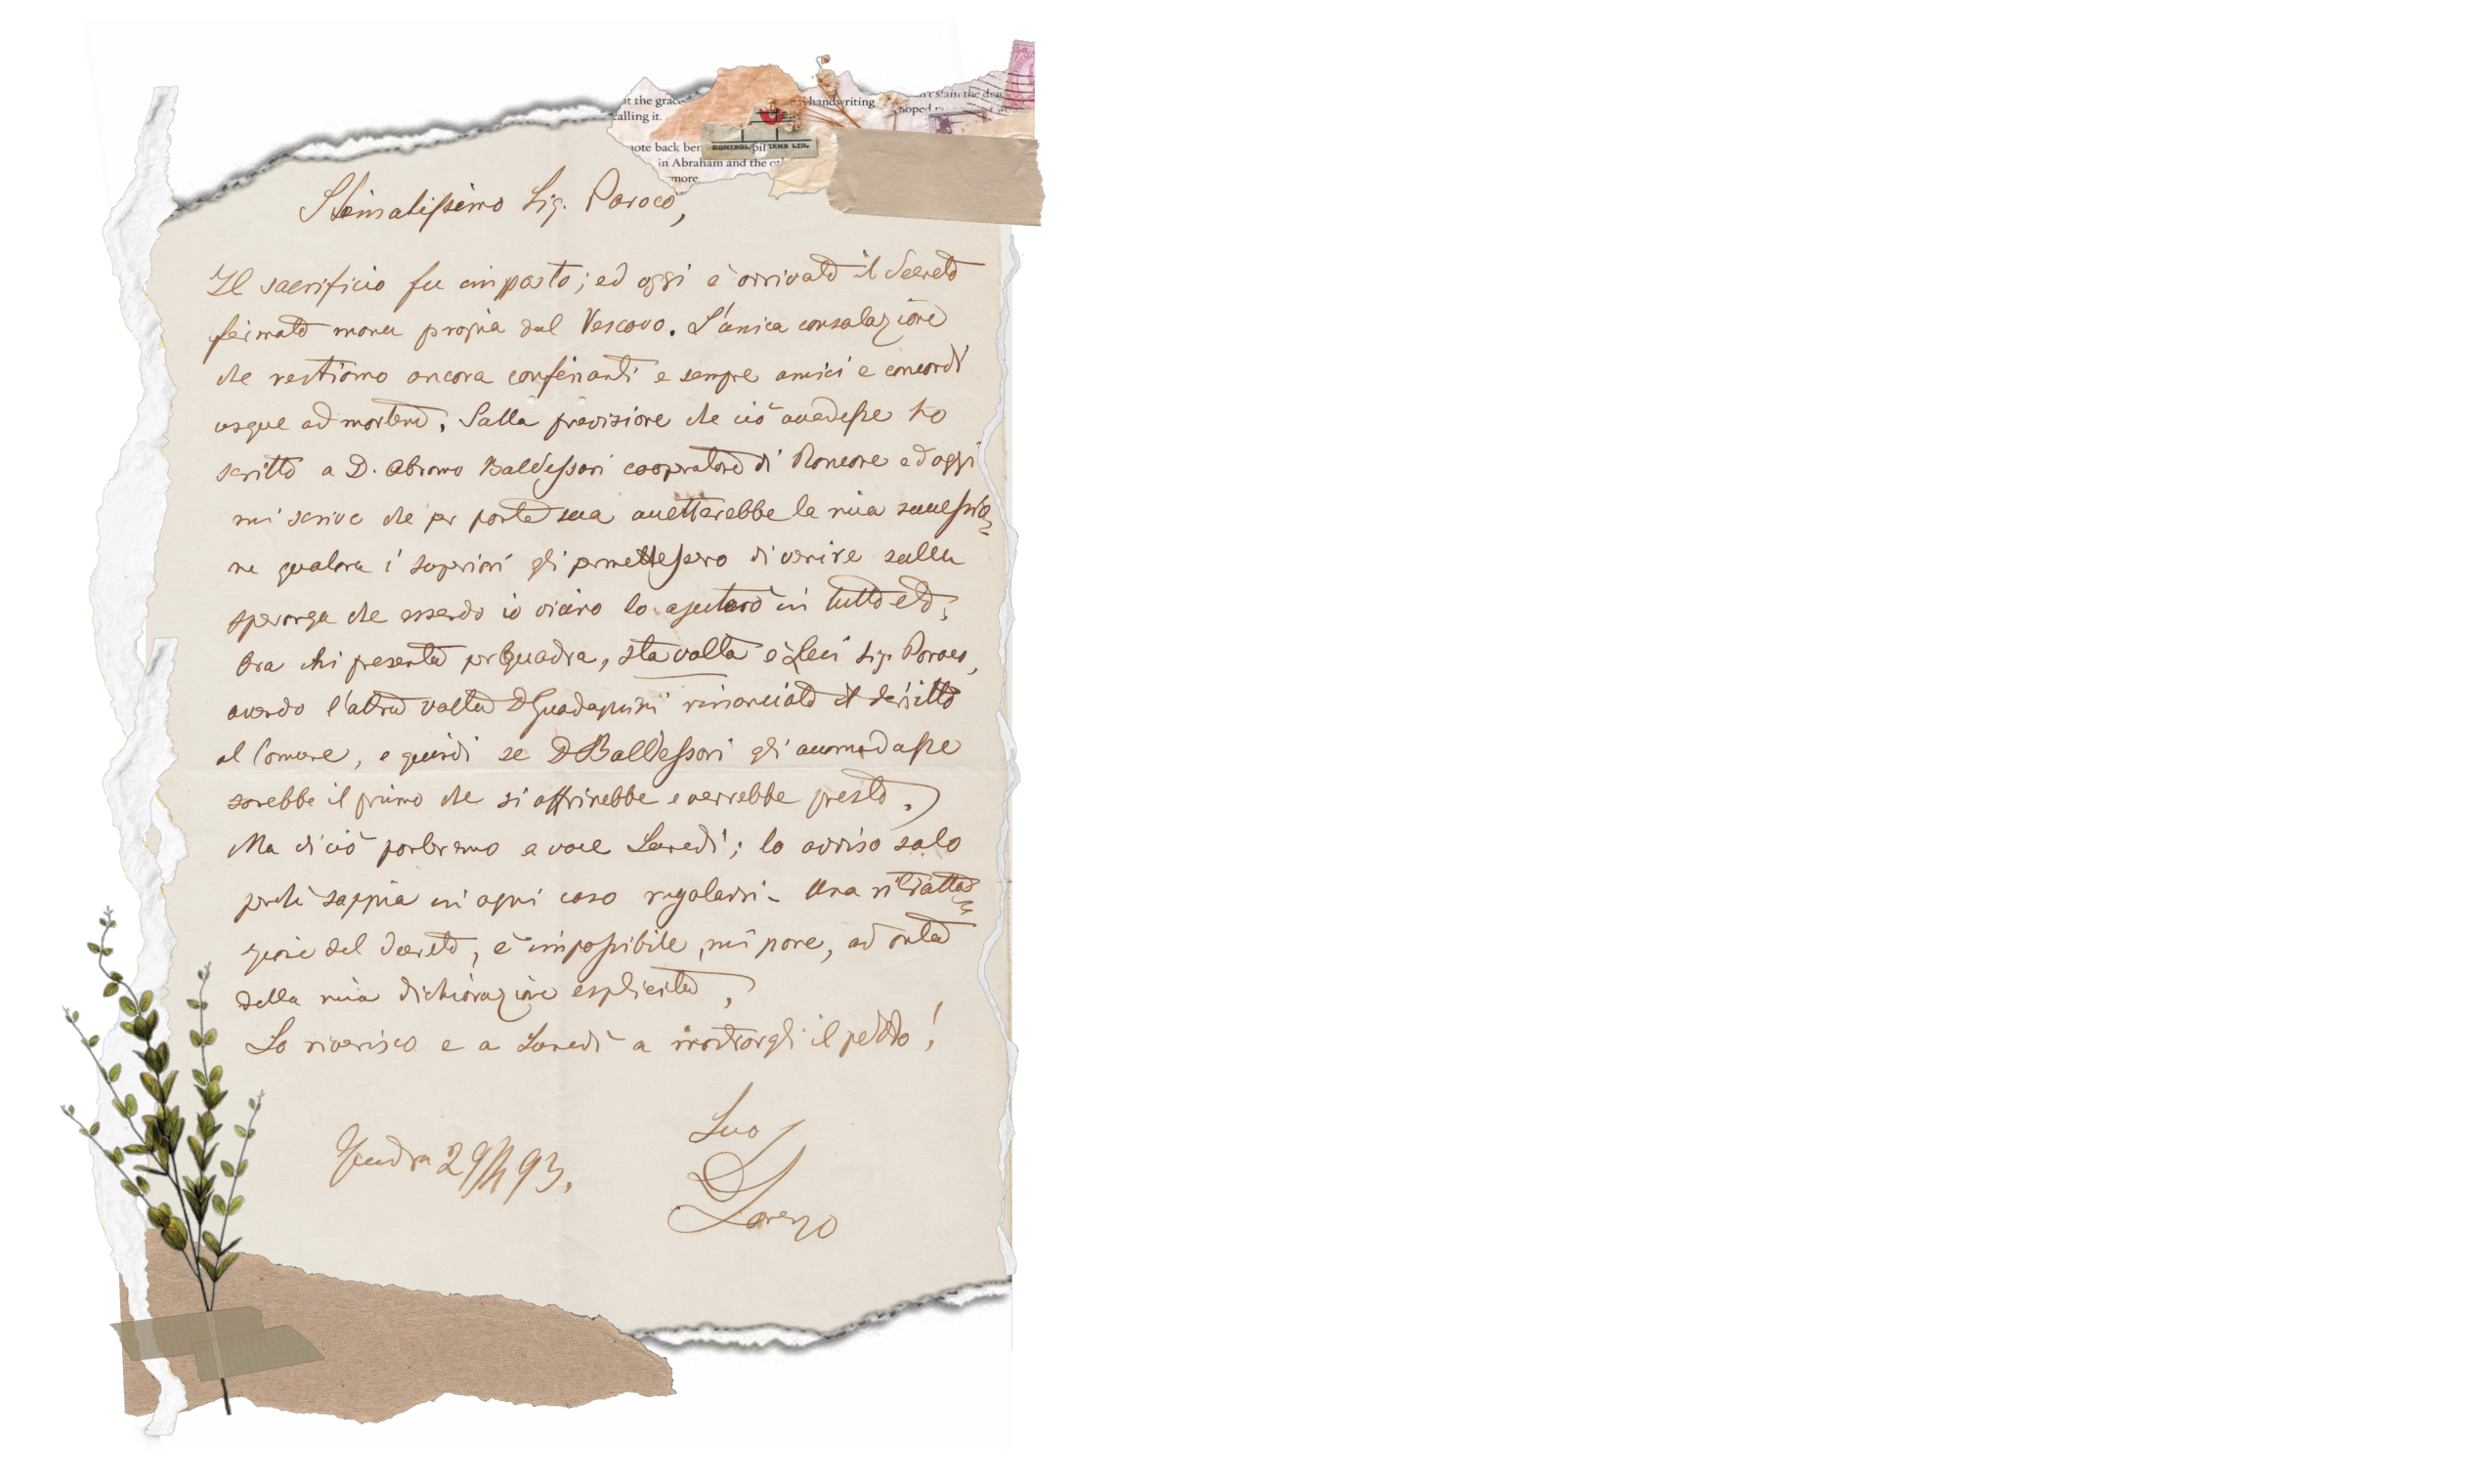 it the grac
handwriting
n't stain the dra
calling it.
hoped
note back ber
CONTROL
pil
TEMS LTD.
in Abraham and the oth
more
Stimatissimo Sig. Paroco,
Il sacrificio fu imposto; ed oggi è arrivato il Decreto
firmato manu propria dal Vescovo. L'unica consolazione
che restiamo ancora confinanti e sempre amici e concordi
usque ad mortem. Sulla previsione che ciò accadesse ho
scritto a D. Abramo Baldessari cooperatore di Roncone ed oggi
mi scrive che per parte sua accettarebbe la mia successio=
ne qualora i superiori gli permettessero di venire sulla
speranza che essendo io vicino lo ajuterò in tutto etc.
Ora chi presenta per Quadra, sta volta è Lei Sig. Paroco,
avendo l'altra volta D. Guadagnini rinonciato il diritto
al Comune, e quindi se D Baldessari gli accomodasse
sarebbe il primo che si offrirebbe e verrebbe presto.)
Ma di ciò parleremo a voce Lunedì; lo avviso solo
perchè sappia in ogni caso regolarsi - Una ritratta=
zione del decreto, è impossibile, mi pare, ad onta
della mia dichiarazione esplicita,
Lo riverisco e a Lunedì a mostrargli il petto!
Suo
Quadra 29/ 93.
D Lorenzo